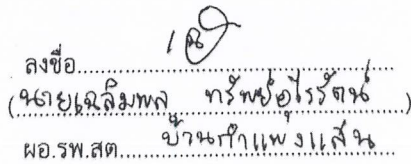 ลงชื่อ
(นายเฉลิมพล ทรัพย์อุไรรัตน์)
ผอ.รพ.สต. บ้านกำแพงแสน